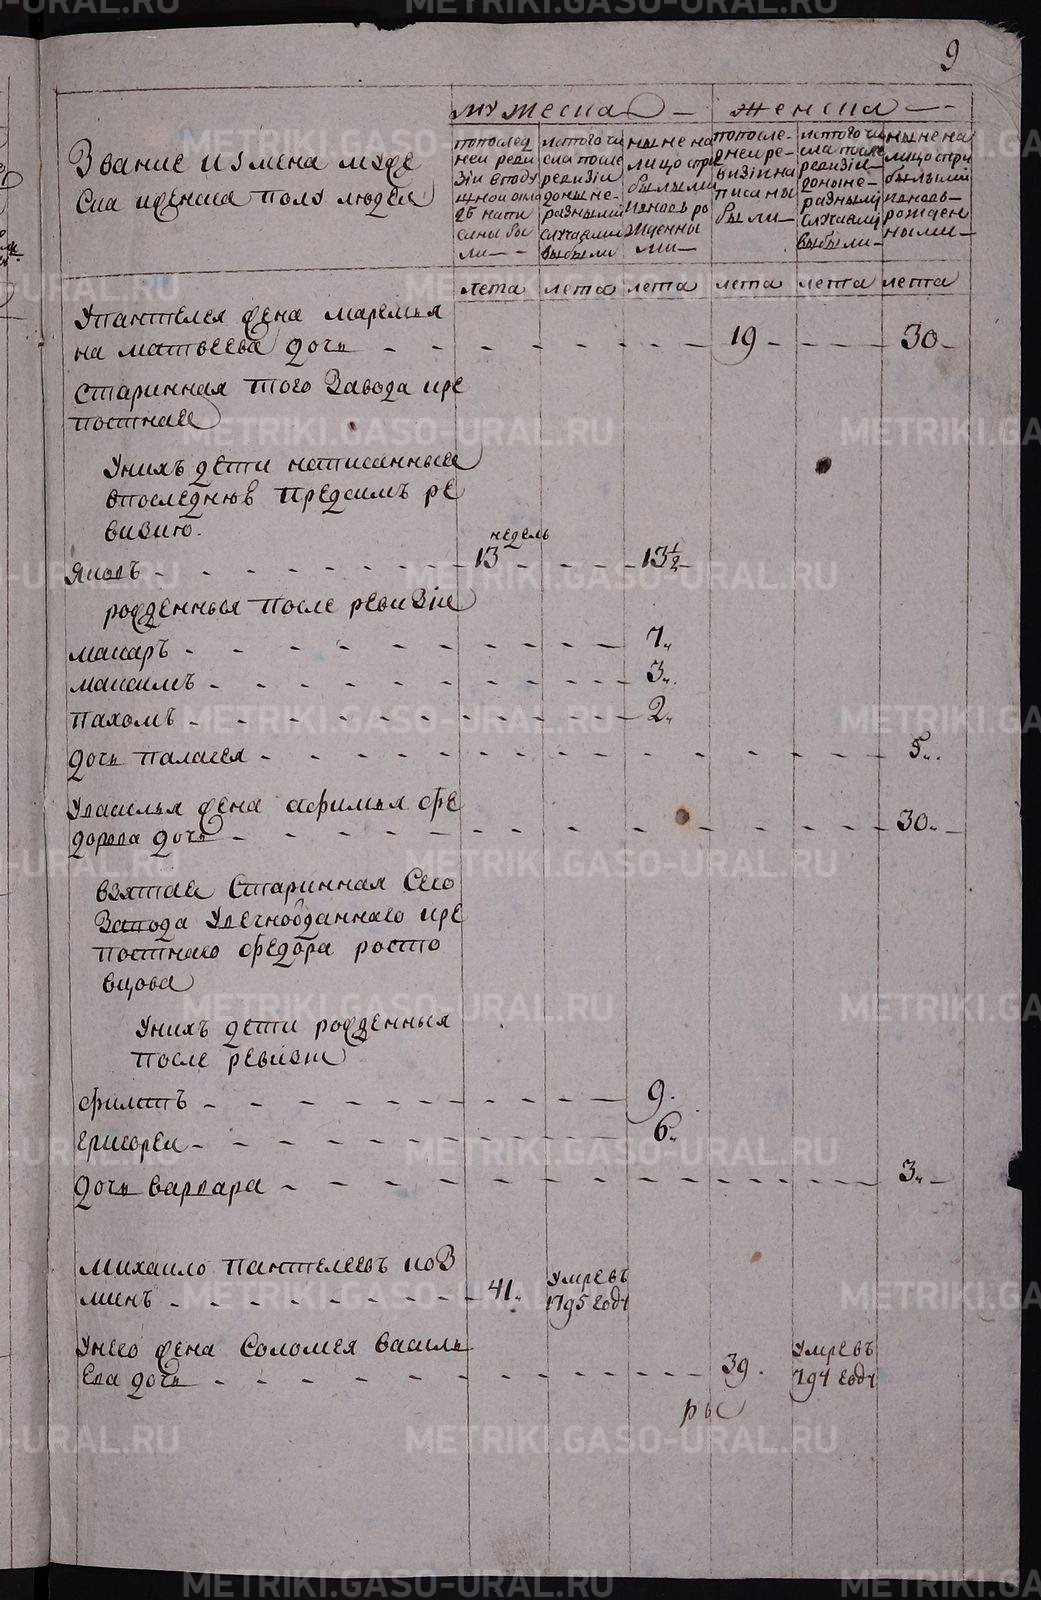 9
мужеска
женска
Звание и имена муже
ска и женска полу людей
по послед
ней реви
зіи в поду
шной окла
дѣ напи
саны бы
ли
ис того чи
сла после
ревизіи
до ныне
разными
случаями
выбыли
ныне на
лицо при
былыми
и вновь ро
жденны
ми
по после-
дней ре-
визіи на
писаны
были
ис того чи
сла после
ревизіи
до ныне-
разными
случаями
выбыли
ныне на
лицо при
былыми
и вновь-
рожден
ными
лета лета лета лета лета лета
У Пантелея жена Маремья
на Матвеева дочь 19 30
старинная того завода кре
постная
У нихъ дети написанные
в последнюю пред симъ ре
визию.
недель
Яковъ 13 13½
рожденныя после ревизіи
Макаръ 7
Максимъ 3
Пахомъ 2
дочь Палагея 5
У Василья жена Афимья Фе
дорова дочь 30
взятая старинная сего
завода у вечноотданнаго кре
постнаго Федора Росто
вцова
У нихъ дети рожденныя
после ревизіи
Филипъ 9
Григорей 6
дочь Варвара 3
Михаило Пантелеевъ Коз
минъ 41 умре въ
1795 году
У него жена Соломея Василь
ева дочь 39 умре въ
794 году
ры
METRIKI.GASO-URAL.RU